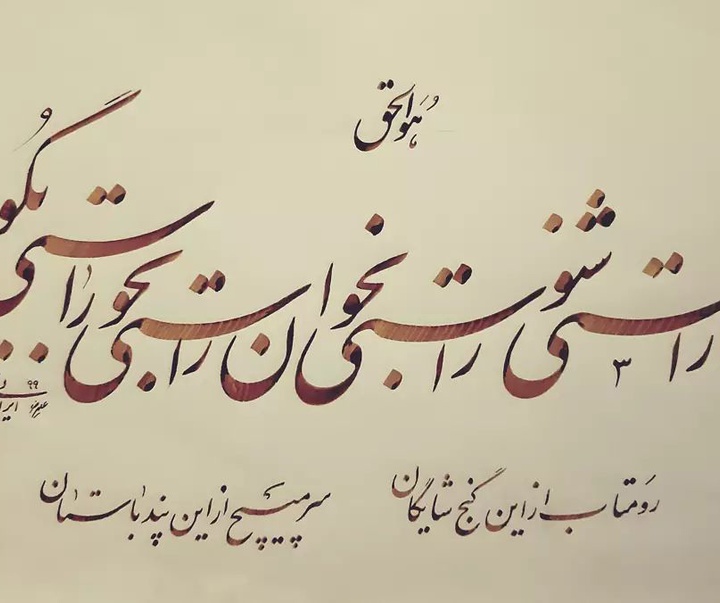 هوالحق
راستی شنو راستی بخوان راستی بجو راستی بگو
رو متاب از این گنج شایگان سر مپیچ از این پند باستان
۹۹